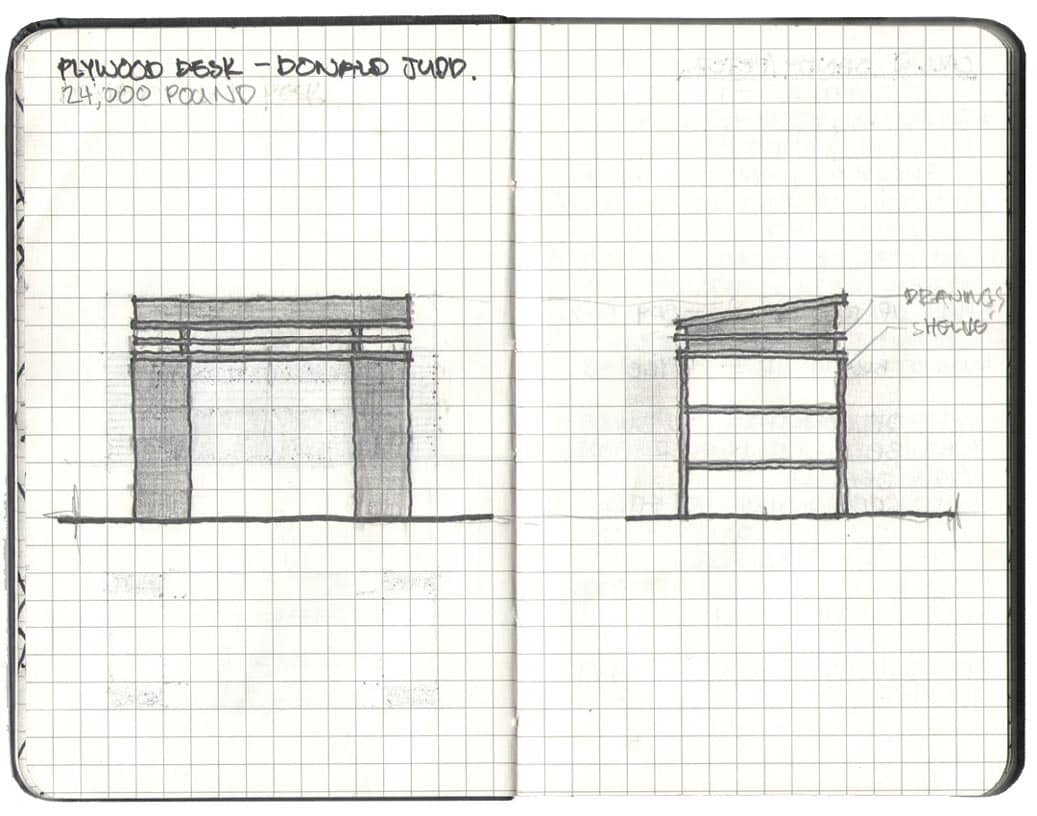 PLYWOOD DESK - DONALD JUDD.
24,000 POUND
DRAWINGS
SHELVE